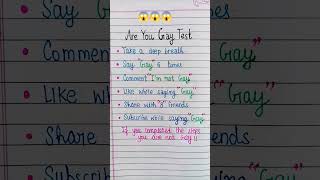 Are You Gay Test
• Take a deep breath
• Say "Gay" 6 times
• Comment "I'm not Gay"
• Like while saying "Gay"
• Share with "8" friends
• Subscribe while saying "Gay"
If you completed the steps
you are not Gay !!
Comment
Like
Share
"Gay"
"Gay"